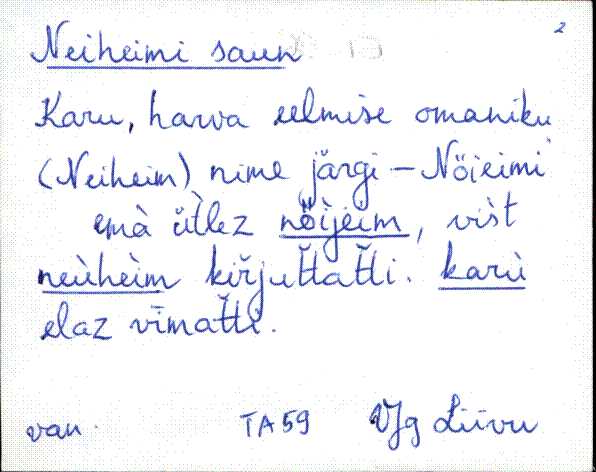 2
Neiheimi saun
Karu, harva eelmise omaniku
(Neiheim) nime järgi – Nöieimi
emà ùtlez nöìjeim, vìst
neùhèim kiřjuťťaťťi. karù
elaz vīmaťťi.
van. TA 59 VJg Liivu